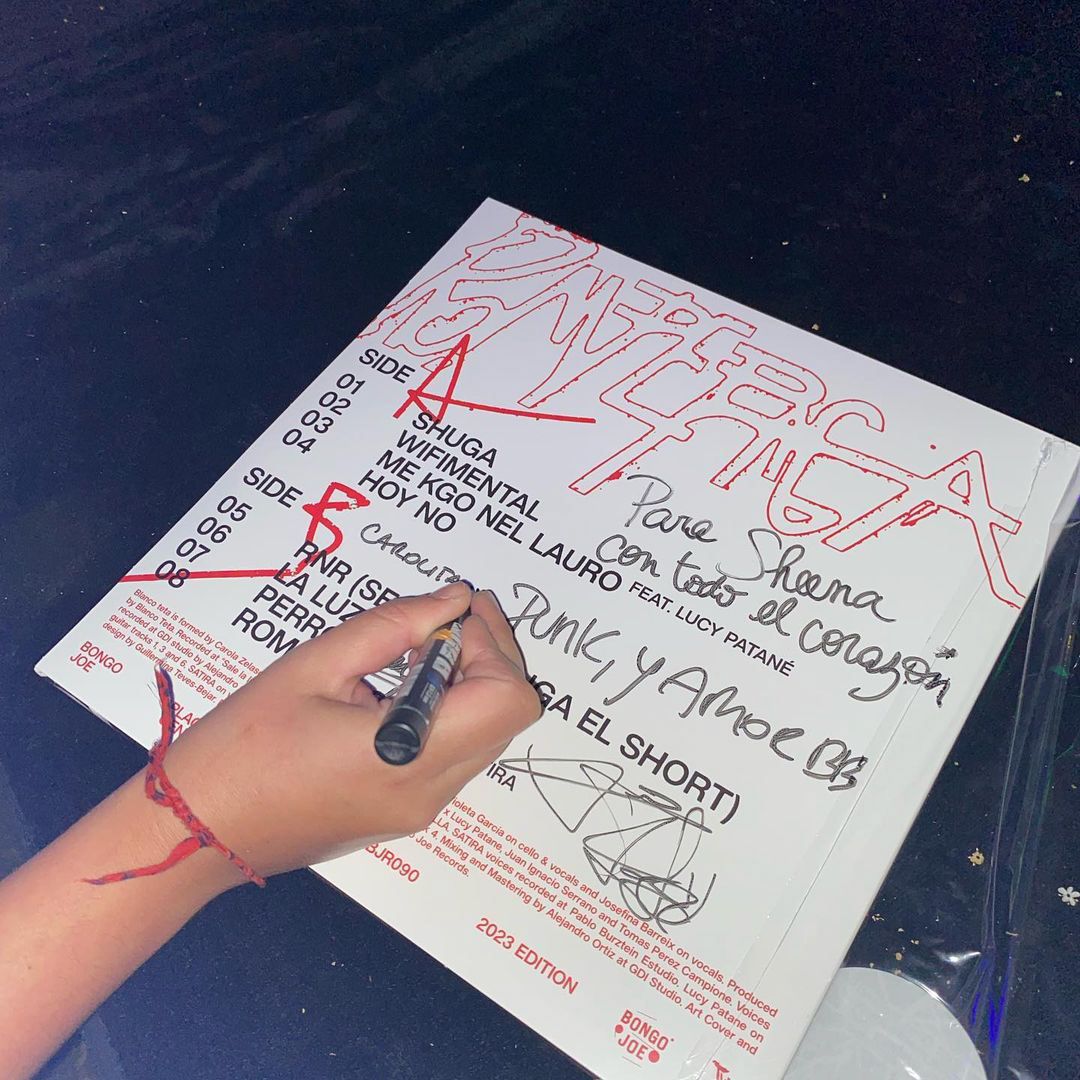 SIDE A
01 SHUGA
02 WIFIMENTAL
03 ME KGO NEL LAURO FEAT. LUCY PATANÉ
04 HOY NO
SIDE B
05 RNR
06 LA LUZ
07
08
GA EL SHORT)
IRA
Para Sheena
con todo el corazón
PUNK, Y AMOR BB
CAROLITA
Blanco teta is formed by Carola
by Blanco Teta. Recorded at
recorded at GDI studio by Alejandro
guitar tracks 1, 3 and 6. SATIRA on
design by Guillermina Teves-Bejar.
ioleta Garcia on cello & vocals and Josefina Barreix on vocals. Produced
x Lucy Patane, Juan Ignacio Serrano and Tomas Perez Campione. Voices
LA. SATIRA voices recorded at Pablo Burztein Estudio. Lucy Patane on
k 4. Mixing and Mastering by Alejandro Ortiz at GDI Studio. Art Cover and
Joe Records.
BONGO
JOE
BJR090
2023 EDITION
BONGO
JOE